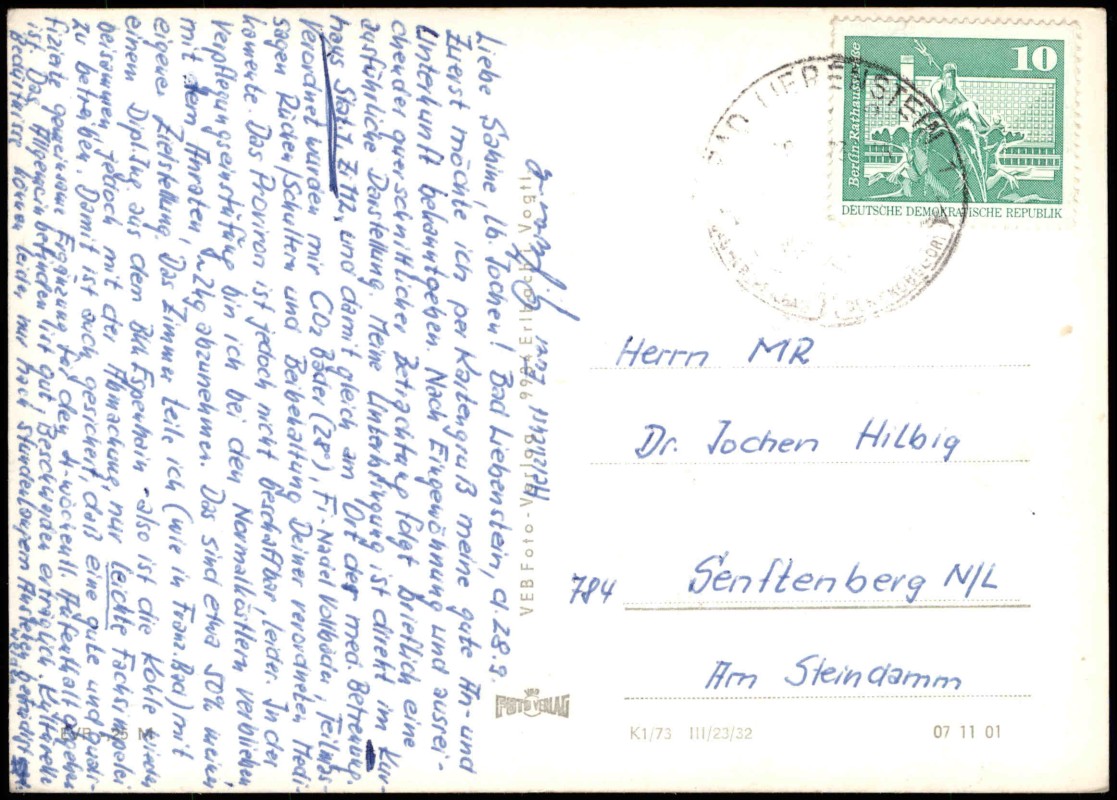 Liebe Sabine, lb. Jochen! Bad Liebenstein, d. 28.9.
Zuerst möchte ich per Kartengruß meine gute An- und
Unterkunft bekanntgeben. Nach Eingewöhnung und ausrei-
chender querschnittlicher Betrachtung folgt brieflich eine
ausführliche Darstellung. Meine Unterbringung ist direkt im Kur-
haus, Stat. I, Zi. und damit gleich am Ort der med. Betreuung.
Verordnet wurden mir CO2 Bäder (28°), Fi-Nadel Vollbäder, Teilmas-
sagen Rücken/Schultern und Beibehaltung Deiner verordneten Medi-
kamente. Das ist jedoch nicht beschaffbar, leider. In der
Verpflegungseinstufung bin ich bei den Normalköstlern verblieben
mit dem Anraten, ~2kg abzunehmen. Das sind etwa 50% meiner
eigene Zielstellung. Das Zimmer teile ich (wie in Franz.Bad) mit
einem Dipl.Ing aus dem BKK Espenhain - also ist die Kohle wieder
beisammen, jedoch mit der Abmachung, nur leichte Fachsimpelei
zu betreiben. Damit ist auch gesichert, daß eine gute und
gemeinsame Ergänzung für den 4-wöchentl. Aufenthalt gegeben
ist. Das Allgemeinbefinden ist gut, Beschwerden erträglich. Kulturelle
Bedürfnisse können leider nur nach stundenlangem Anstehen befriedigt
werden.
Herzlichst Euer
VEB Foto-Verlag 9934 Erlbach i. Vogtl
VEB
FOTO VERLAG
EVP -,25 M
10
Berlin-Rathausstraße
DEUTSCHE DEMOKRATISCHE REPUBLIK
BAD LIEBENSTEIN 1
Herrn MR
Dr. Jochen Hilbig
784 Senftenberg N/L
Am Steindamm
K1/73 III/23/32
07 11 01